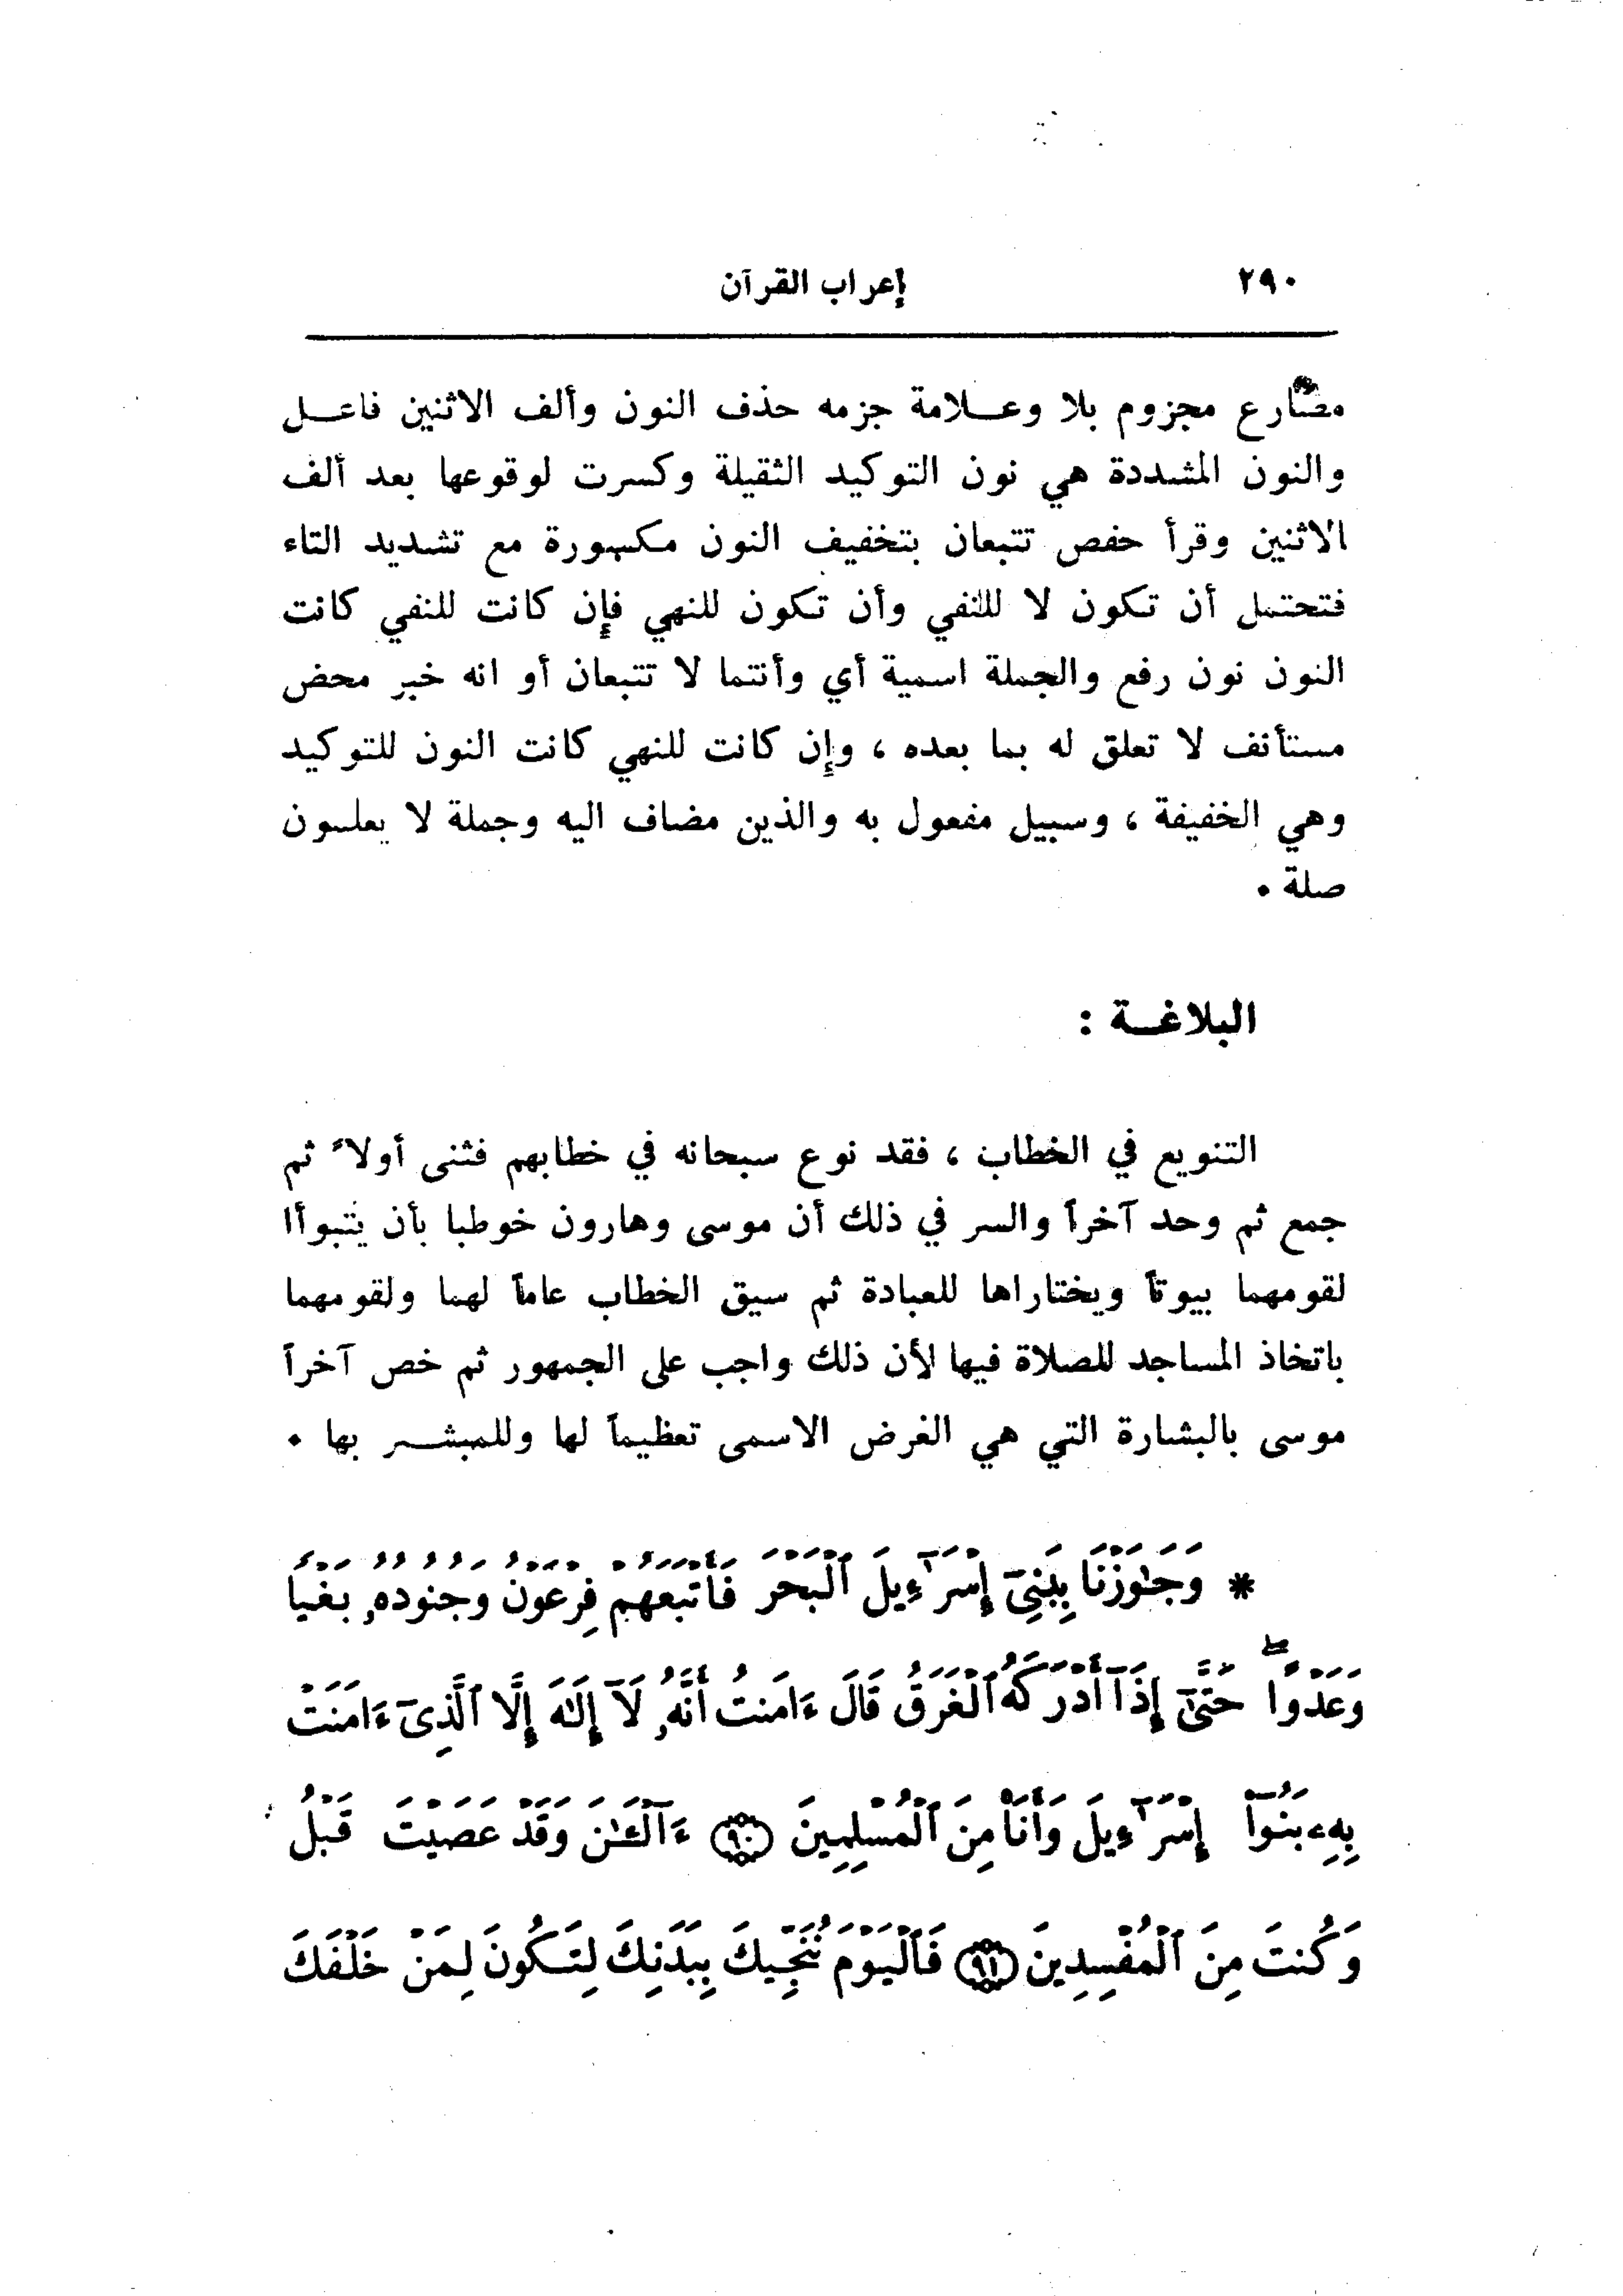 ٢٩٠ إعراب القرآن
مضارع مجزوم بلا وعلامة جزمه حذف النون وألف الاثنين فاعل
والنون المشددة هي نون التوكيد الثقيلة وكسرت لوقوعها بعد ألف
الاثنين وقرأ حفص تتبعان بتخفيف النون مكسورة مع تشديد التاء
فتحتمل أن تكون لا للنفي وأن تكون للنهي فإن كانت للنفي كانت
النون نون رفع والجملة اسمية أي وأنتما لا تتبعان أو انه خبر محض
مستأنف لا تعلق له بما بعده ، وإن كانت للنهي كانت النون للتوكيد
وهي الخفيفة ، وسبيل مفعول به والذين مضاف اليه وجملة لا يعلمون
صلة .
البلاغة :
التنويع في الخطاب ، فقد نوع سبحانه في خطابهم فثنى أولاً ثم
جمع ثم وحد آخراً والسر في ذلك أن موسى وهارون خوطبا بأن يتبوأا
لقومهما بيوتاً ويختاراها للعبادة ثم سيق الخطاب عاماً لهما ولقومهما
باتخاذ المساجد للصلاة فيها لأن ذلك واجب على الجمهور ثم خص آخراً
موسى بالبشارة التي هي الغرض الاسمى تعظيماً لها وللمبشر بها .
* وَجَٰوَزْنَا بِبَنِىٓ إِسْرَٰٓءِيلَ ٱلْبَحْرَ فَأَتْبَعَهُمْ فِرْعَوْنُ وَجُنُودُهُۥ بَغْيًا
وَعَدْوًا ۖ حَتَّىٰٓ إِذَآ أَدْرَكَهُ ٱلْغَرَقُ قَالَ ءَامَنتُ أَنَّهُۥ لَآ إِلَٰهَ إِلَّا ٱلَّذِىٓ ءَامَنَتْ
بِهِۦ بَنُوٓا۟ إِسْرَٰٓءِيلَ وَأَنَا۠ مِنَ ٱلْمُسْلِمِينَ ٩٠ ءَآلْـَٰٔنَ وَقَدْ عَصَيْتَ قَبْلُ
وَكُنتَ مِنَ ٱلْمُفْسِدِينَ ٩١ فَٱلْيَوْمَ نُنَجِّيكَ بِبَدَنِكَ لِتَكُونَ لِمَنْ خَلْفَكَ